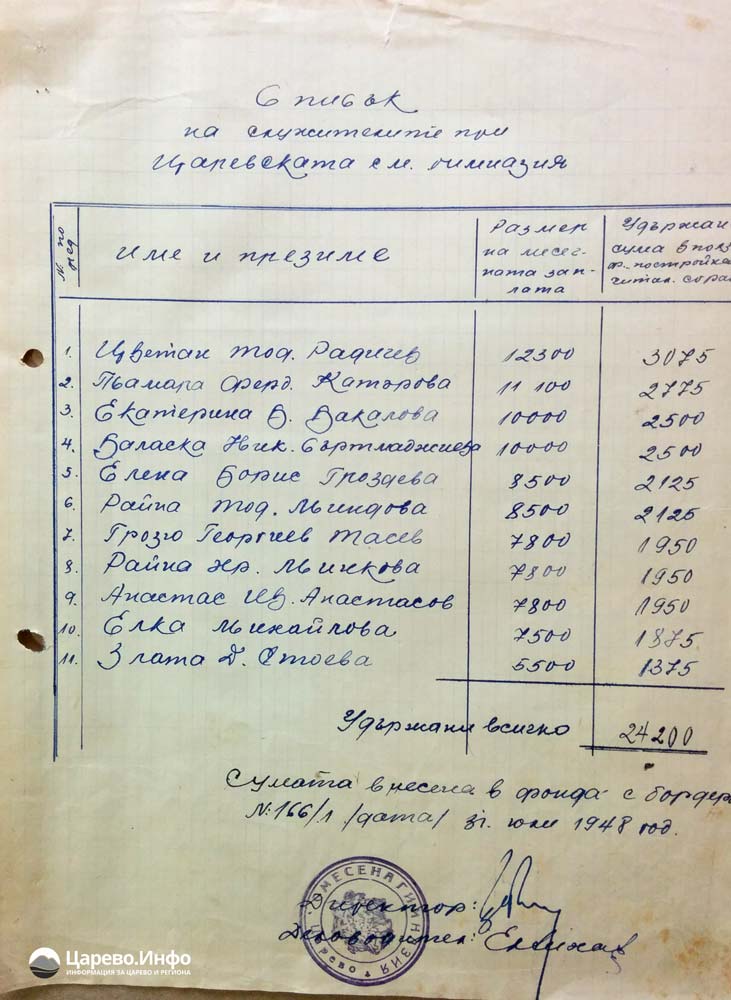 Списък
на служителите при
Царевската см. гимназия
№ по ред
Име и презиме
Размер на месеч- ната зап- лата
Удържан сума в полз ф. постройка читал. сгра
1. Цветан Тод. Радичев 12300 3075
2. Тамара Ферд. Каторова 11 100 2775
3. Екатерина В. Вакалова 10000 2500
4. Валаска Ник. Съртмаджиева 10000 2500
5. Елена Борис Гроздева 8500 2125
6. Райна Тод. Миндова 8500 2125
7. Грозю Георгиев Тасев 7800 1950
8. Райна Хр. Минкова 7800 1950
9. Анастас Ив. Анастасов 7800 1950
10. Елка Михайлова 7500 1875
11. Злата Д. Стоева 5500 1375
Удържани всичко 24200
Сумата внесена в фонда с бордер
№ 166/1 /дата/ 31. юли 1948 год.
Директор:
Деловодител:
СМЕСЕНА ГИМНАЗИЯ
Царево.Инфо
ИНФОРМАЦИЯ ЗА ЦАРЕВО И РЕГИОНА